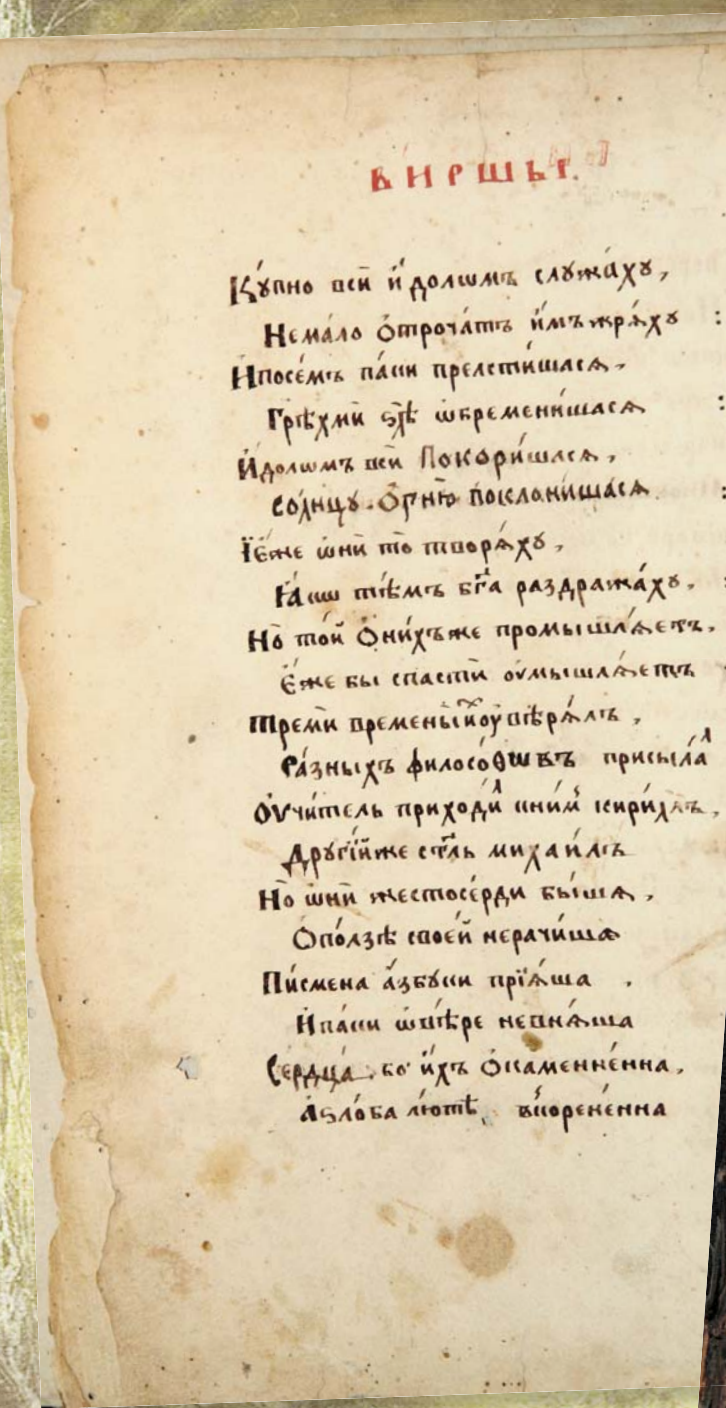 ВИРШЫ.
Кꙋ́пно всѝ и҆́долѡмъ слꙋжа́хꙋ,
Нема́ло ѻ҆троча́тъ и҆́мъ жрѧ́хꙋ :
И҆посе́мъ па́ки прелсти́шасѧ,
Грѣхмѝ ѕѣ́лѡ ѡ҆бремени́шасѧ :
И҆́долѡмъ всѝ покори́шасѧ,
Со́лнцꙋ. Ѻ҆гню̀ поклони́шасѧ :
І҆е́же ѡ҆нѝ то̀ творѧ́хꙋ,
Ꙗ҆́кѡ тѣ́мъ бг҃а раздража́хꙋ,
Но̀ то́й Ѻ҆ни́хъже промышлѧ́етъ,
Е҆́же бы спастѝ оу҆мышлѧ́етъ
Тремѝ времены̀ и҆̀хъ оу҆вѣрѧ́лъ,
Ра́зныхъ филосо́ѳѡвъ присыла́л
Оу҆чи́тель приходи́л сни́мъ кири́лъ,
Дрꙋгі́йже ст҃ль михаи́лъ
Но̀ ѡ҆нѝ жестосе́рди бы́шѧ,
Ѻ҆по́лзѣ свое́й нерачи́шѧ
Пи́смена а҆́збꙋки прїѧ́ша ,
И҆па́ки ѡ҆вѣ́ре невнѧ́ша
Сердца́. бо и҆́хъ ѻ҆каменне́нна,
А҆ѕло́ба лю́тѣ, вкорене́нна